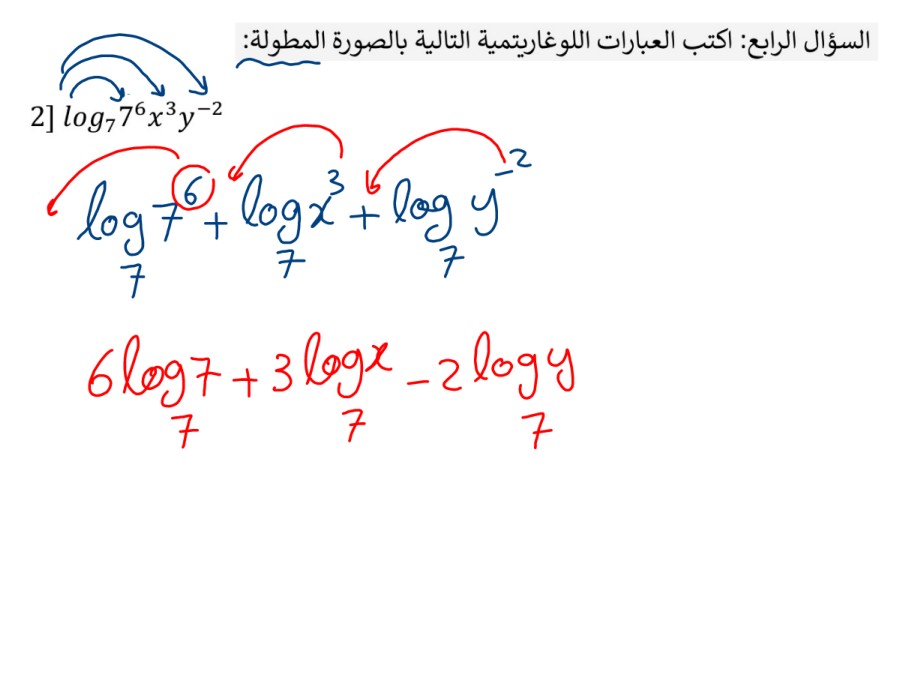 السؤال الرابع: اكتب العبارات اللوغاريتمية التالية بالصورة المطولة:
2] log₇7⁶x³y⁻²
log₇7⁶ + log₇x³ + log₇y⁻²
6log₇7 + 3log₇x - 2log₇y